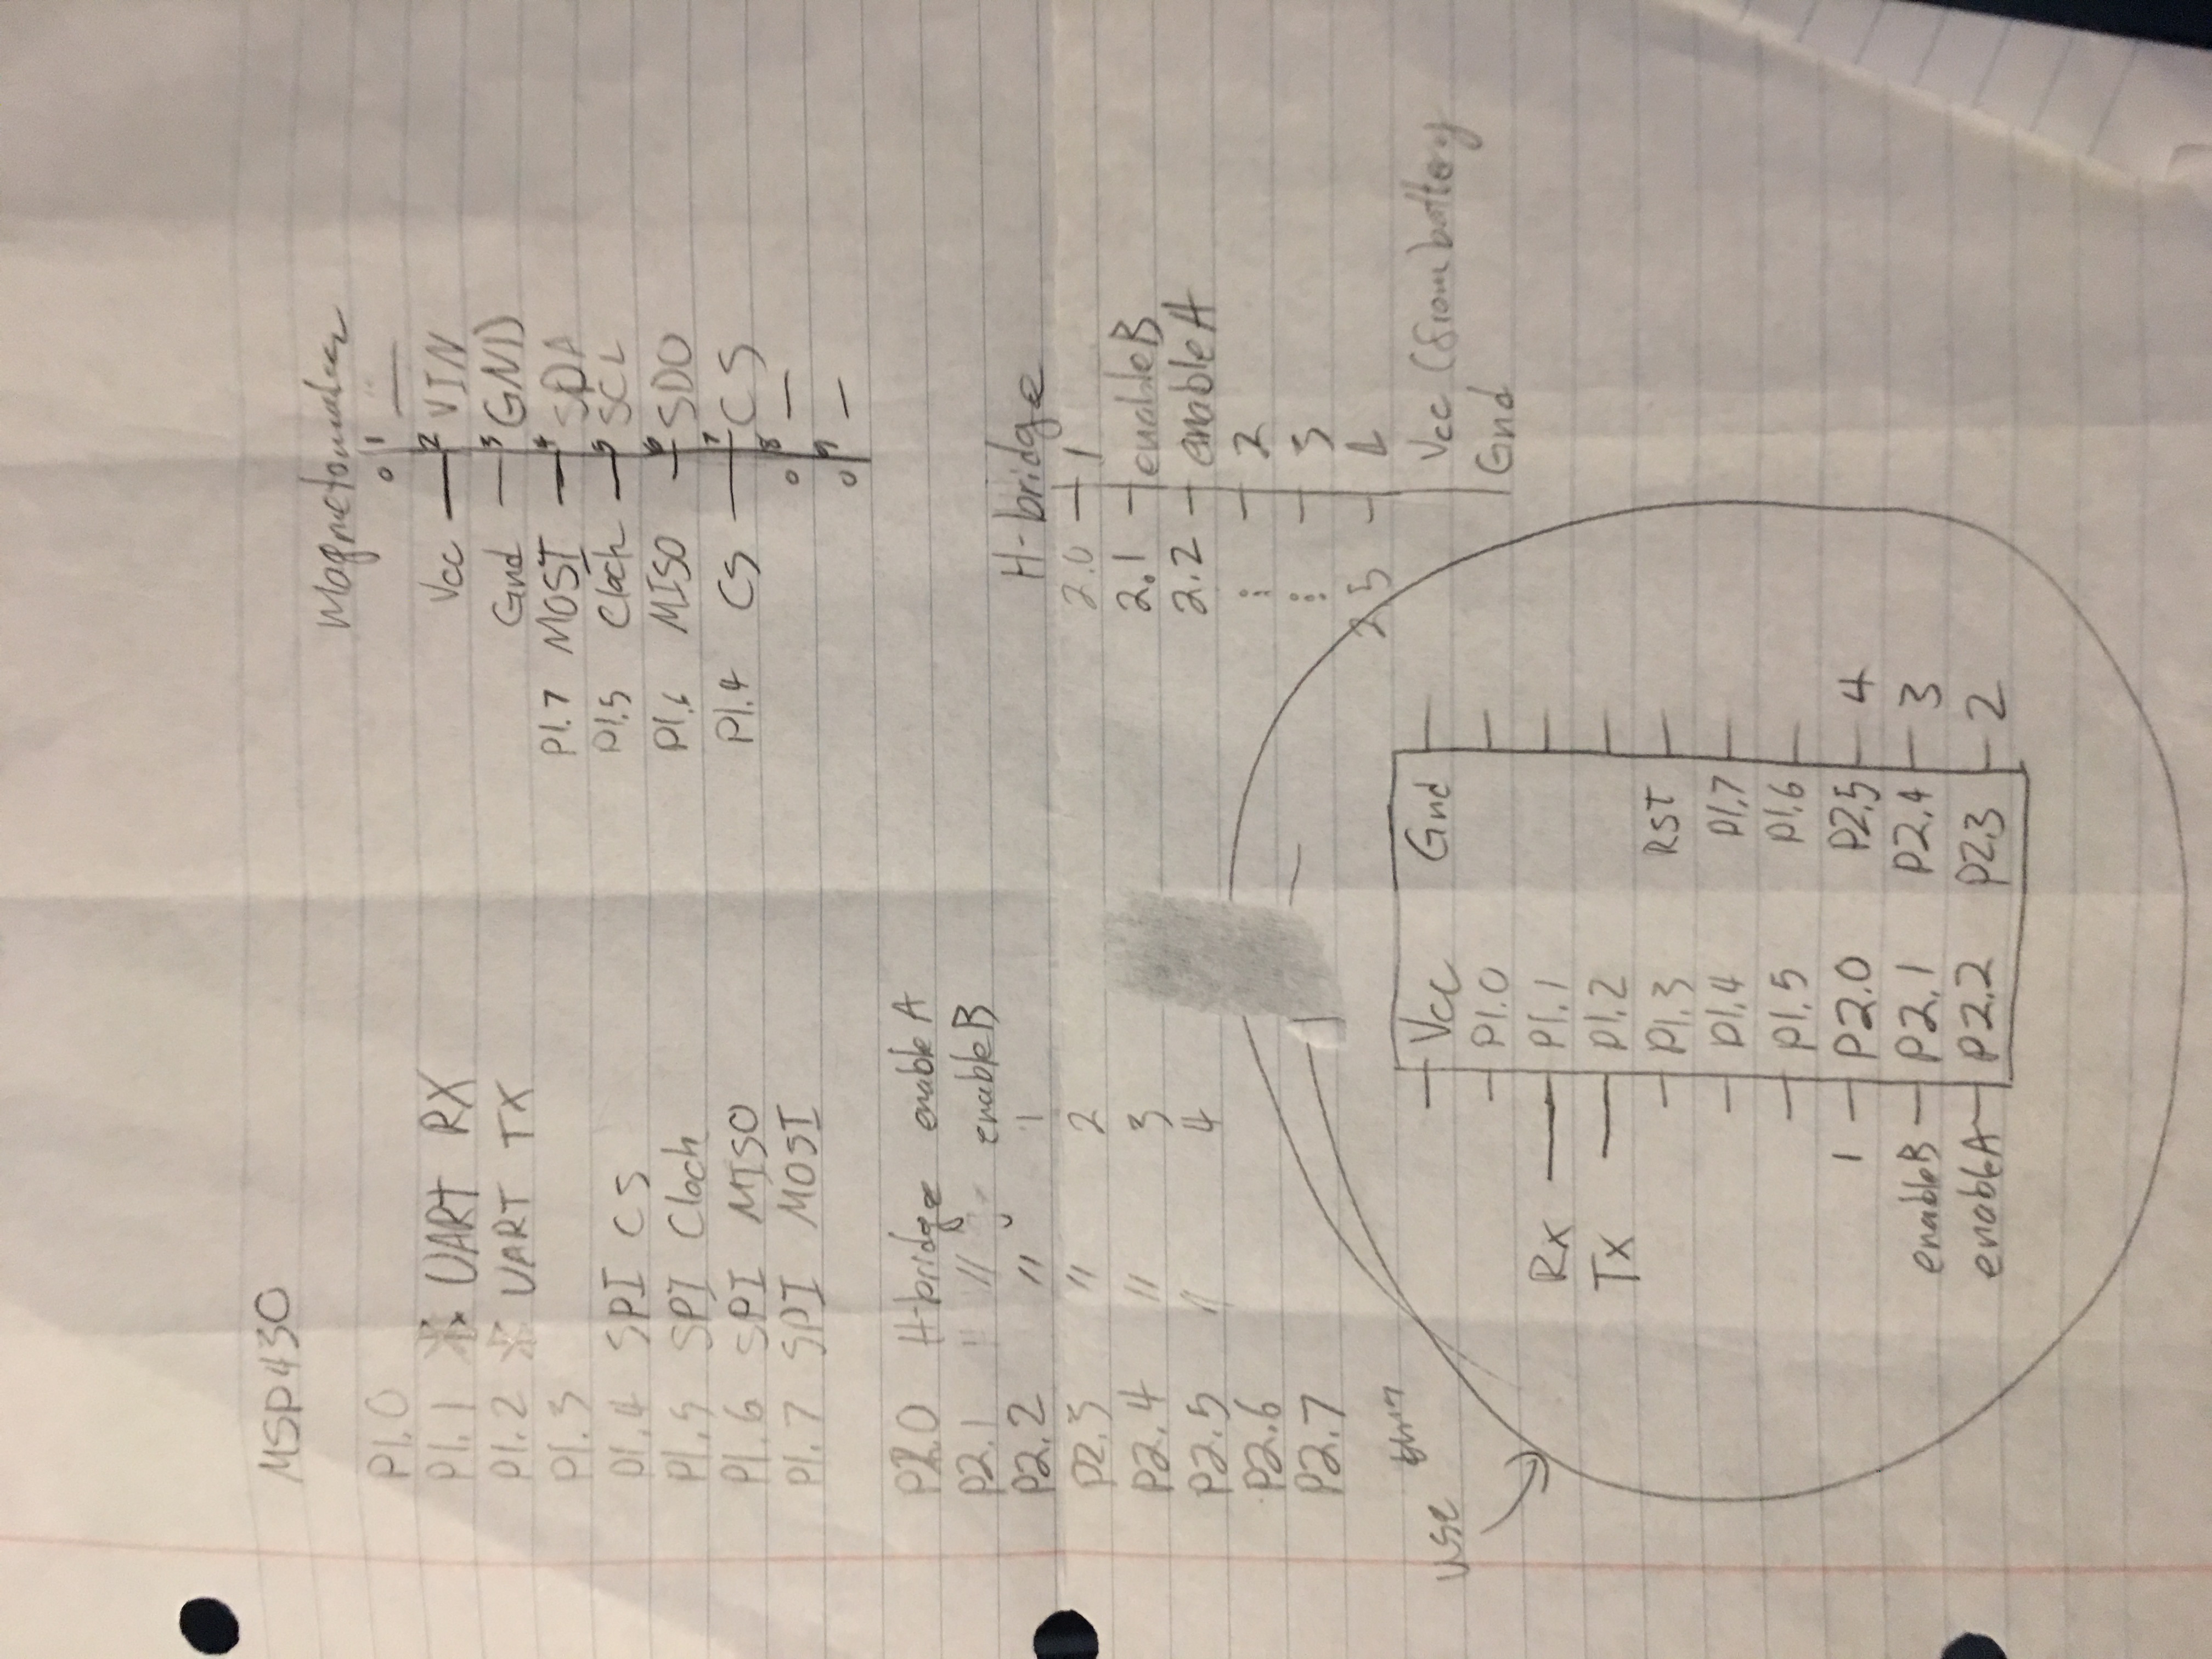 MSP430
P1.0
P1.1 * UART RX
P1.2 * UART TX
P1.3
P1.4 SPI CS
P1.5 SPI Clock
P1.6 SPI MISO
P1.7 SPI MOSI
P2.0 H-bridge enableA
P2.1 " " enableB
P2.2 " 1
P2.3 " 2
P2.4 " 3
P2.5 " 4
P2.6
P2.7
1 —
Vcc 2 VIN
Gnd 3 GND
P1.7 MOSI 4 SDA
P1.5 Clock 5 SCL
P1.6 MISO 6 SDO
P1.4 CS 7 CS
8 —
9 —
H-bridge
2.0 1
2.1 enableB
2.2 enableA
⋮ 2
⋮ 3
2.5 4
Vcc (from) battery
Gnd
use this
Vcc Gnd
P1.0
Rx P1.1
Tx P1.2
P1.3 RST
P1.4 P1.7
P1.5 P1.6
1 P2.0 P2.5 4
enableB P2.1 P2.4 3
enableA P2.2 P2.3 2